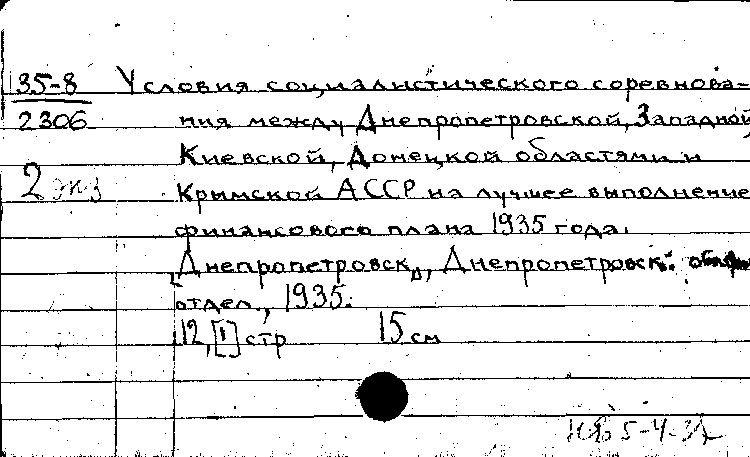 35-8 Условия социалистического соревнова-
2306 ния между Днепропетровской, Западной
Киевской, Донецкой областями и
2 экз Крымской АССР на лучшее выполнение
финансового плана 1935 года.
Днепропетровск, Днепропетровск.
отдел, 1935.
12,[1] стр 15 см